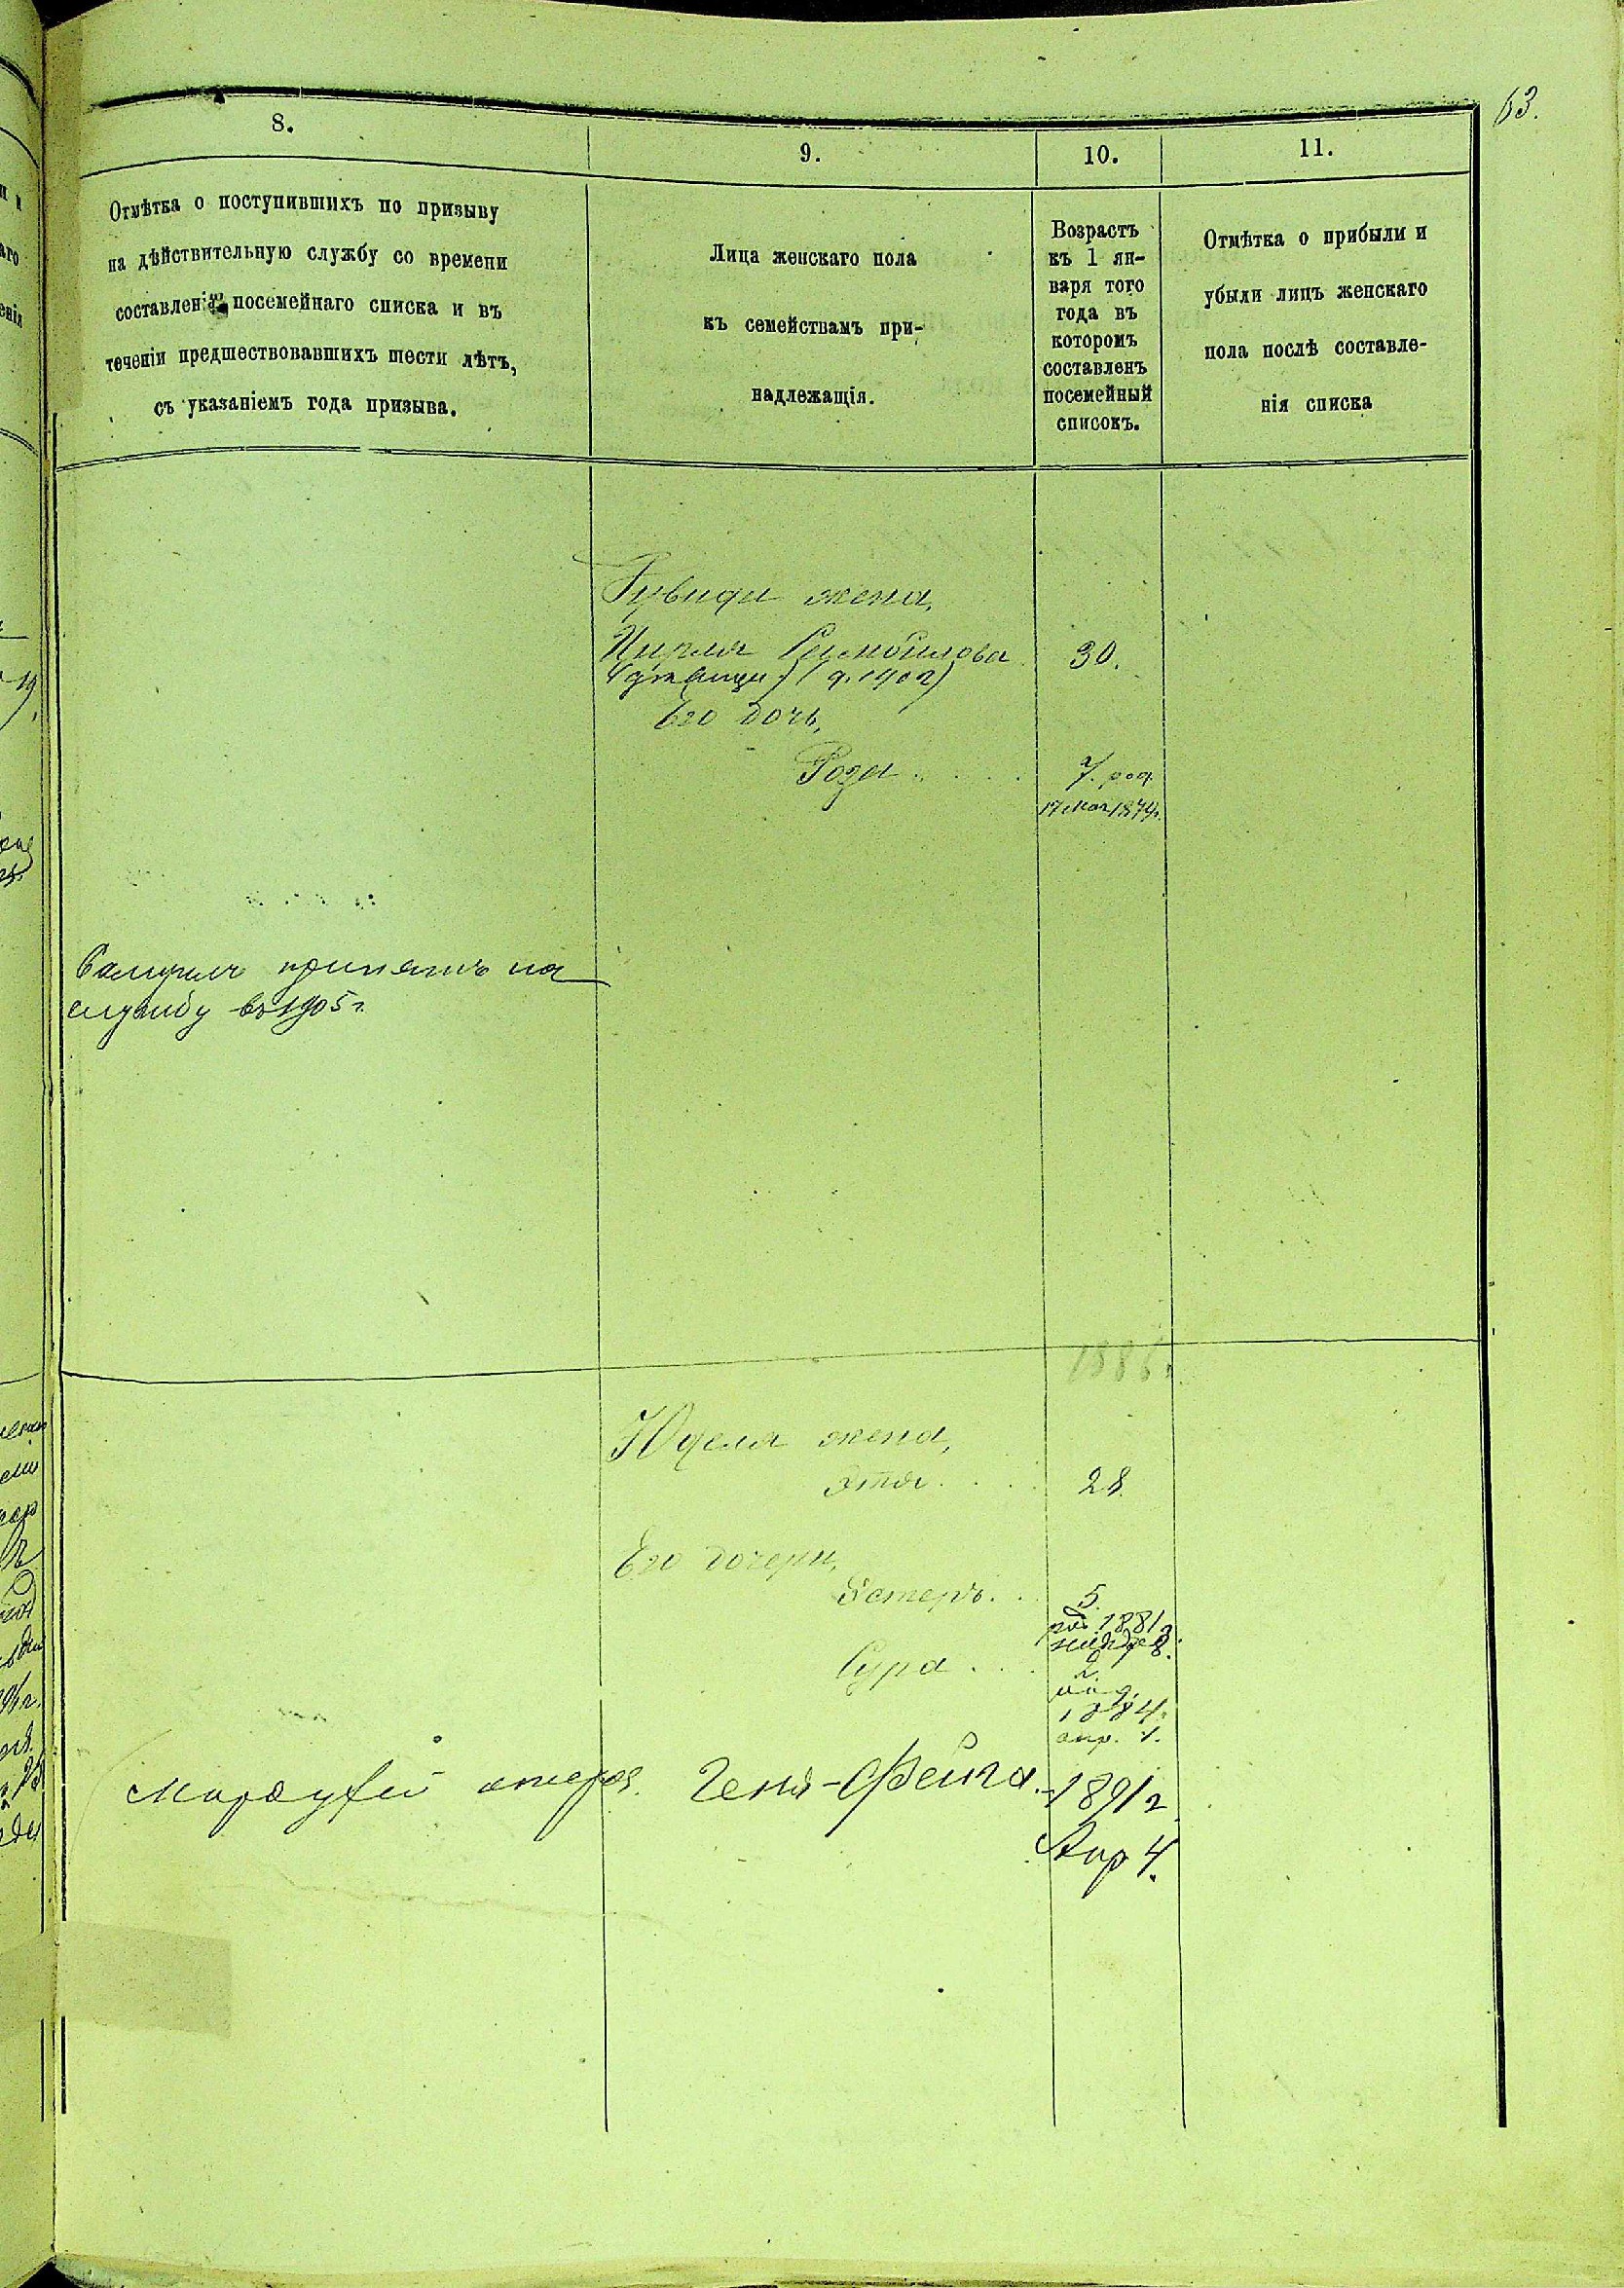 63.
8.
9.
10.
11.
Отмѣтка о поступившихъ по призыву
на дѣйствительную службу со времени
составленія посемейнаго списка и въ
теченіи предшествовавшихъ шести лѣтъ,
съ указаніемъ года призыва.
Лица женскаго пола
къ семействамъ при-
надлежащія.
Возрастъ
къ 1 ян-
варя того
года въ
которомъ
составленъ
посемейный
списокъ.
Отмѣтка о прибыли и
убыли лицъ женскаго
пола послѣ составле-
нія списка
жена,
Самойлова 30.
1902)
Его дочь,
Роза . . . . 7. род.
17 1879г.
принятъ на
службу въ 1905 г.
1886г.
Юделя жена,
Этта . . . . 28.
Его дочери,
Эстеръ . . 5.
1881
Сура . . . 2.
1884
апр. 1.
Мордухей Геня-Фейга 1891 г
Апр 4.